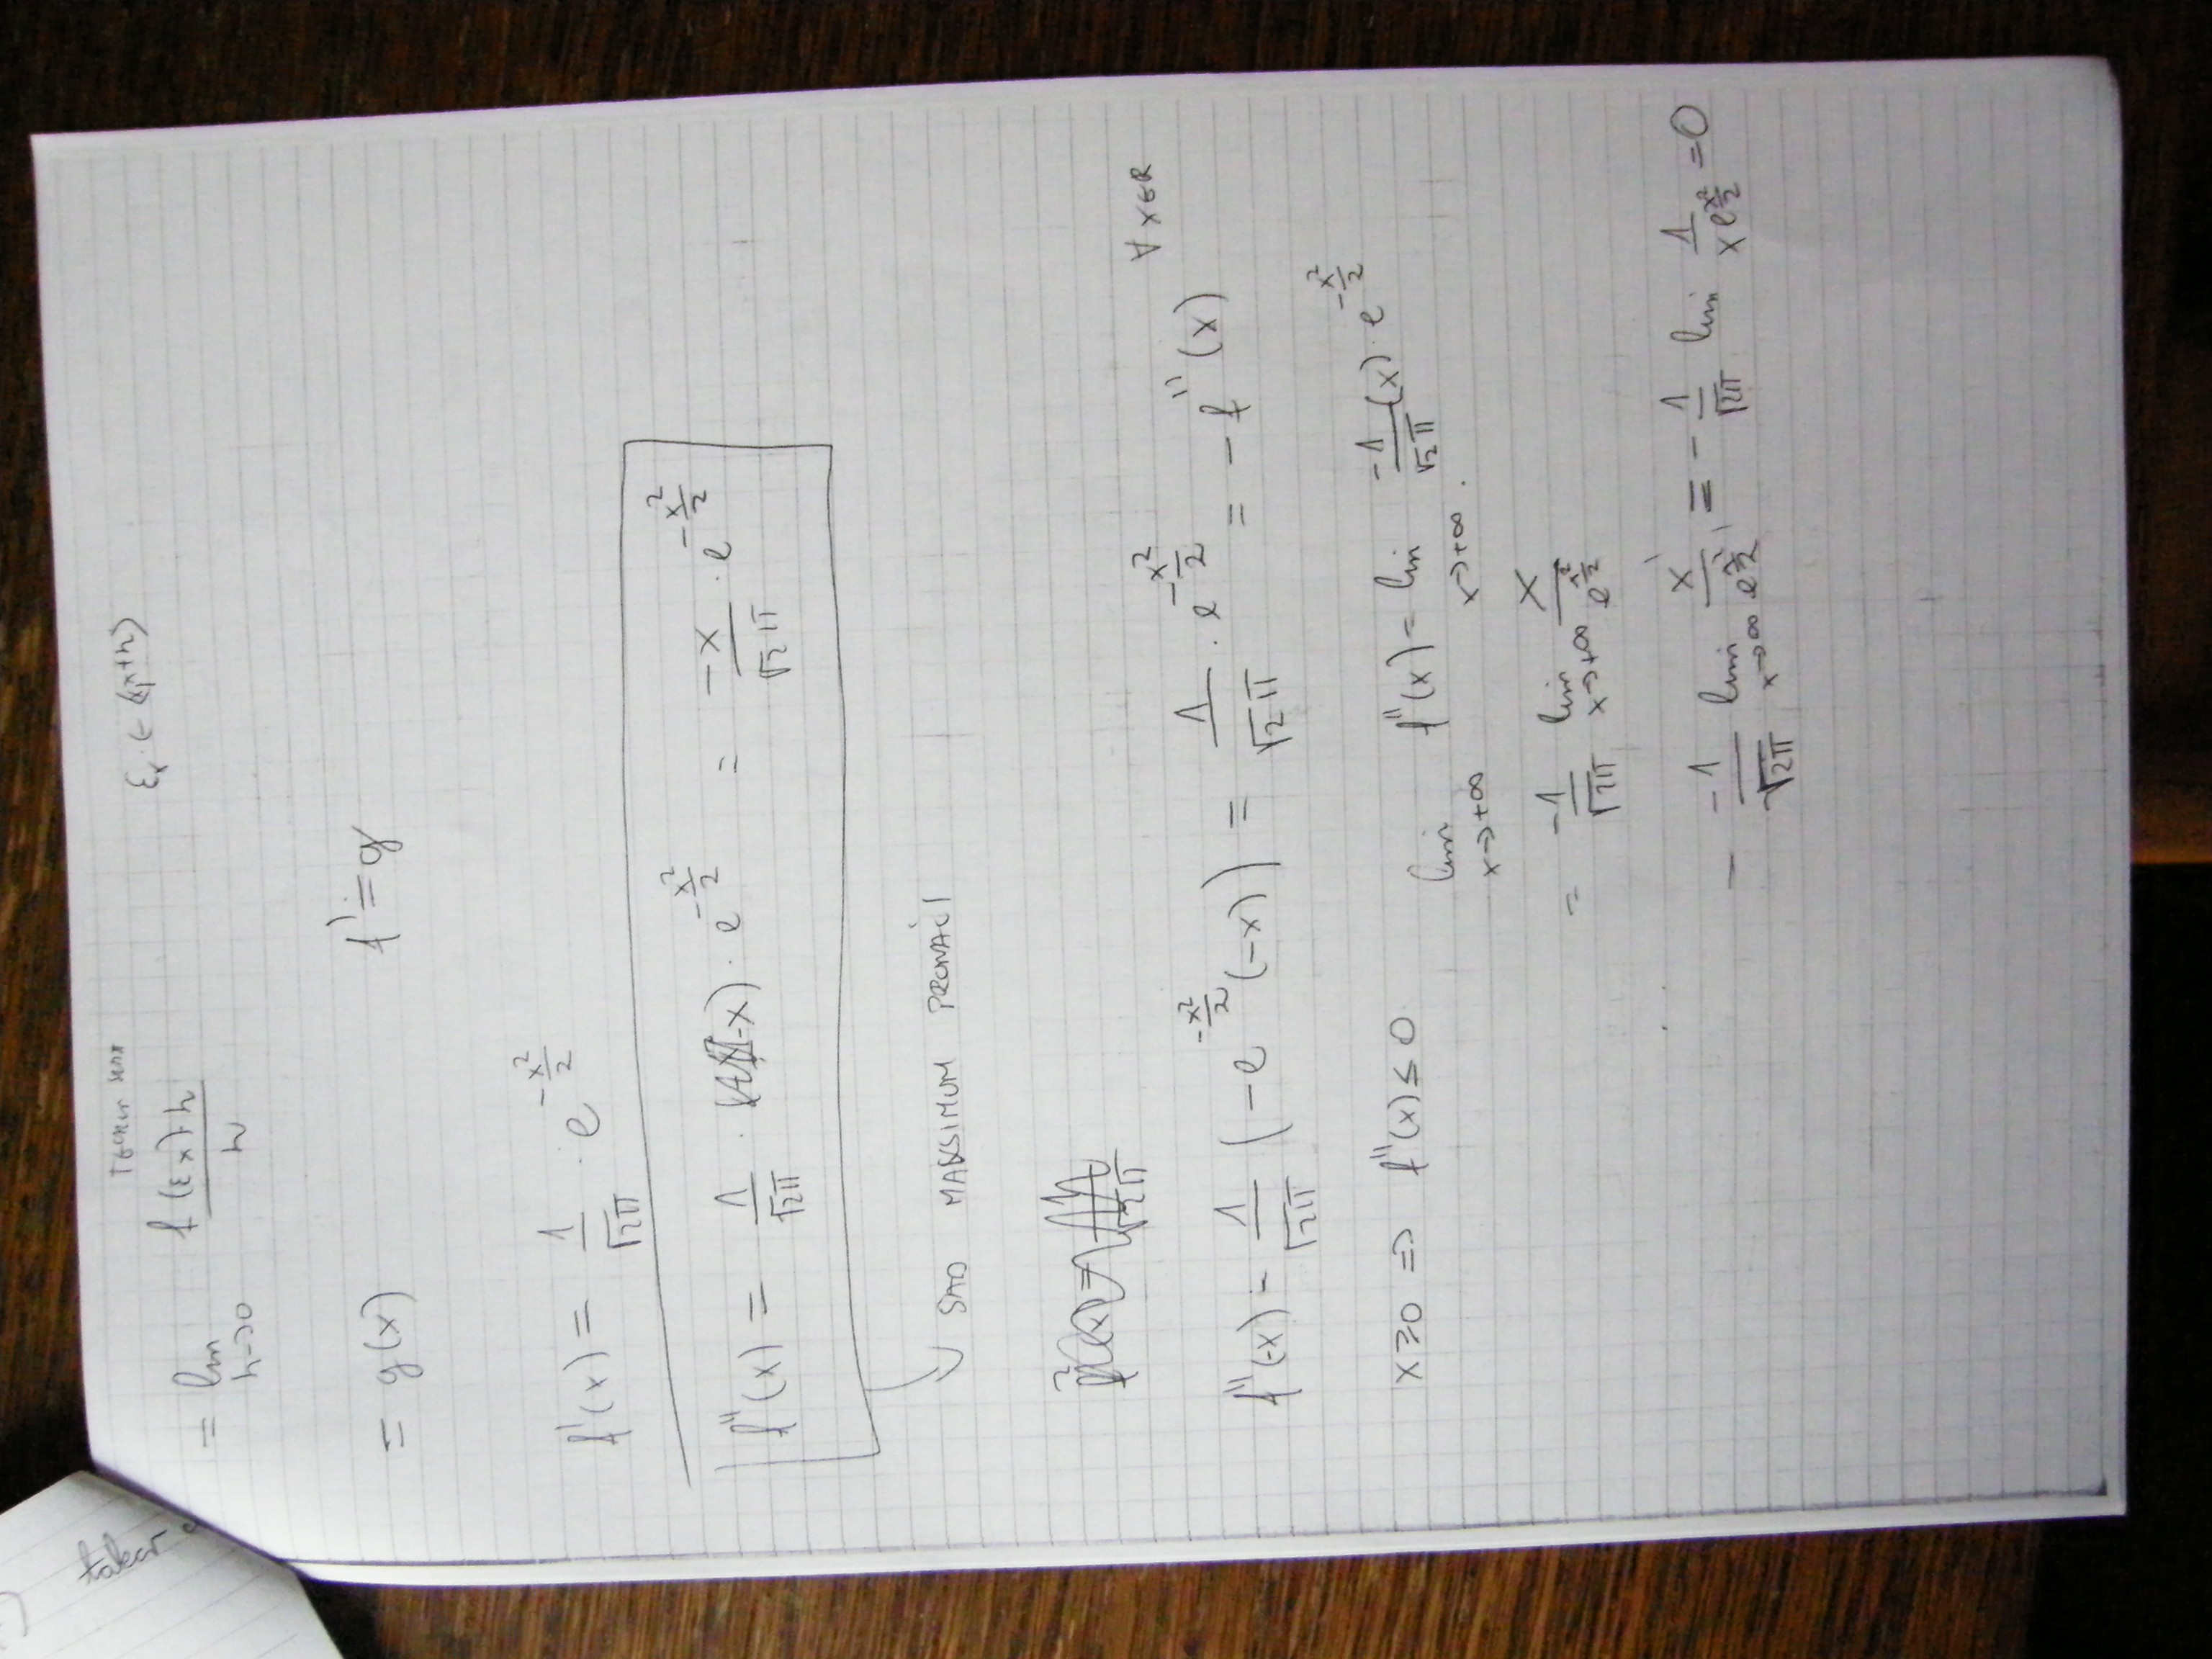 = lim h→0 f(ξx)·h / h ξx ∈ (x, x+h)
= g(x) f' = g
f'(x) = 1/√2π · e^(-x²/2)
f''(x) = 1/√2π · (-x) · e^(-x²/2) = -x/√2π · e^(-x²/2)
SAMO MAKSIMUM PRONAĆI
∀x∈R
f''(-x) = 1/√2π (-e^(-x²/2) (-x)) = 1/√2π · e^(-x²/2) = -f''(x)
x≥0 => f''(x) ≤ 0 lim x→+∞ f''(x) = lim x→+∞ -1/√2π (x) · e^(-x²/2)
= -1/√2π lim x→+∞ x / e^(x²/2)
= -1/√2π lim x→∞ x' / e^(x²/2)' = -1/√2π lim 1 / x e^(x²/2) = 0
takav